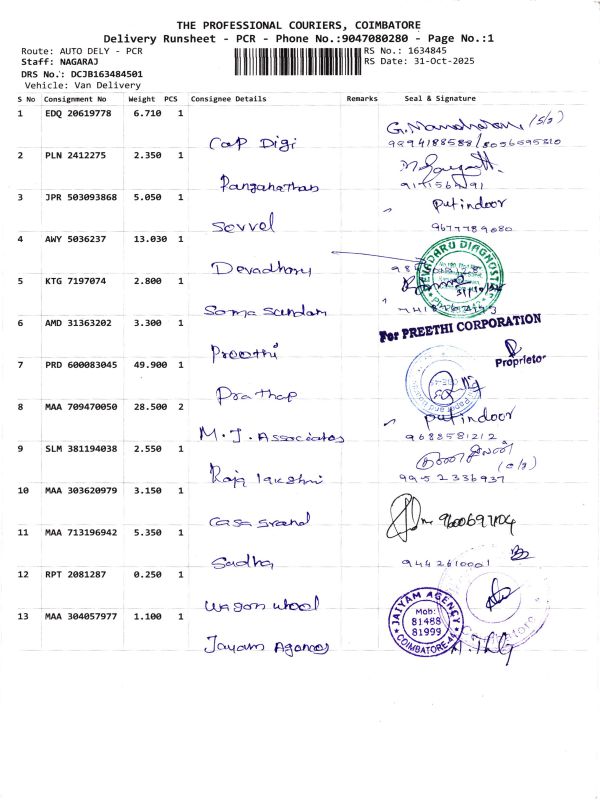 THE PROFESSIONAL COURIERS, COIMBATORE
Delivery Runsheet - PCR - Phone No.:9047080280 - Page No.:1
Route: AUTO DELY - PCR
RS No.: 1634845
Staff: NAGARAJ
RS Date: 31-Oct-2025
DRS No.: DCJB163484501
Vehicle: Van Delivery
S No Consignment No Weight PCS Consignee Details Remarks Seal & Signature
1 EDQ 20619778 6.710 1
Cap Digi 9994188588/8056595310
2 PLN 2412275 2.350 1
3 JPR 503093868 5.050 1 putindoor
Sevvel 9677789080
4 AWY 5036237 13.030 1
Devadharu
5 KTG 7197074 2.800 1
Soma Sundar
6 AMD 31363202 3.300 1 For PREETHI CORPORATION
Preethi
Proprietor
7 PRD 600083045 49.900 1
Prathap
8 MAA 709470050 28.500 2 putindoor
M.J. Associates 9688581212
9 SLM 381194038 2.550 1
Raja lakshmi 9952336937
10 MAA 303620979 3.150 1
Casa Grand
11 MAA 713196942 5.350 1
Sadha 9442610001
12 RPT 2081287 0.250 1
Wagon wheel
13 MAA 304057977 1.100 1
JAIYAM AGENCY
Mob:
81488
81999
COIMBATORE-44
Jayam Agencies